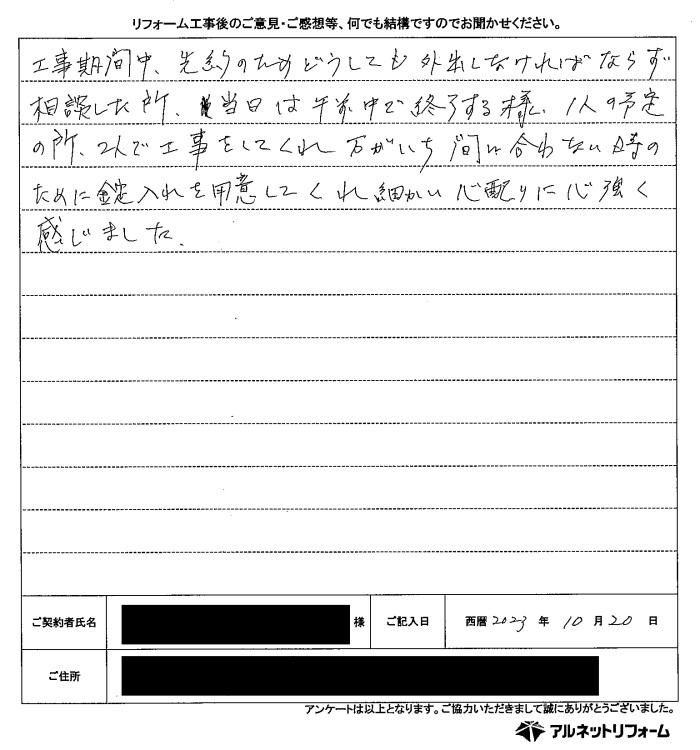 リフォーム工事後のご意見・ご感想等、何でも結構ですのでお聞かせください。
工事期間中、先約のためどうしても外出しなければならず
相談した所、当日は午前中で終了する様、1人の予定
の所、2人で工事をしてくれ万がいち間に合わない時の
ために錠入れを用意してくれ細かい心配りに心強く
感じました。
ご契約者氏名 様 ご記入日 西暦 2023 年 10 月 20 日
ご住所
アンケートは以上となります。ご協力いただきまして誠にありがとうございました。
アルネットリフォーム